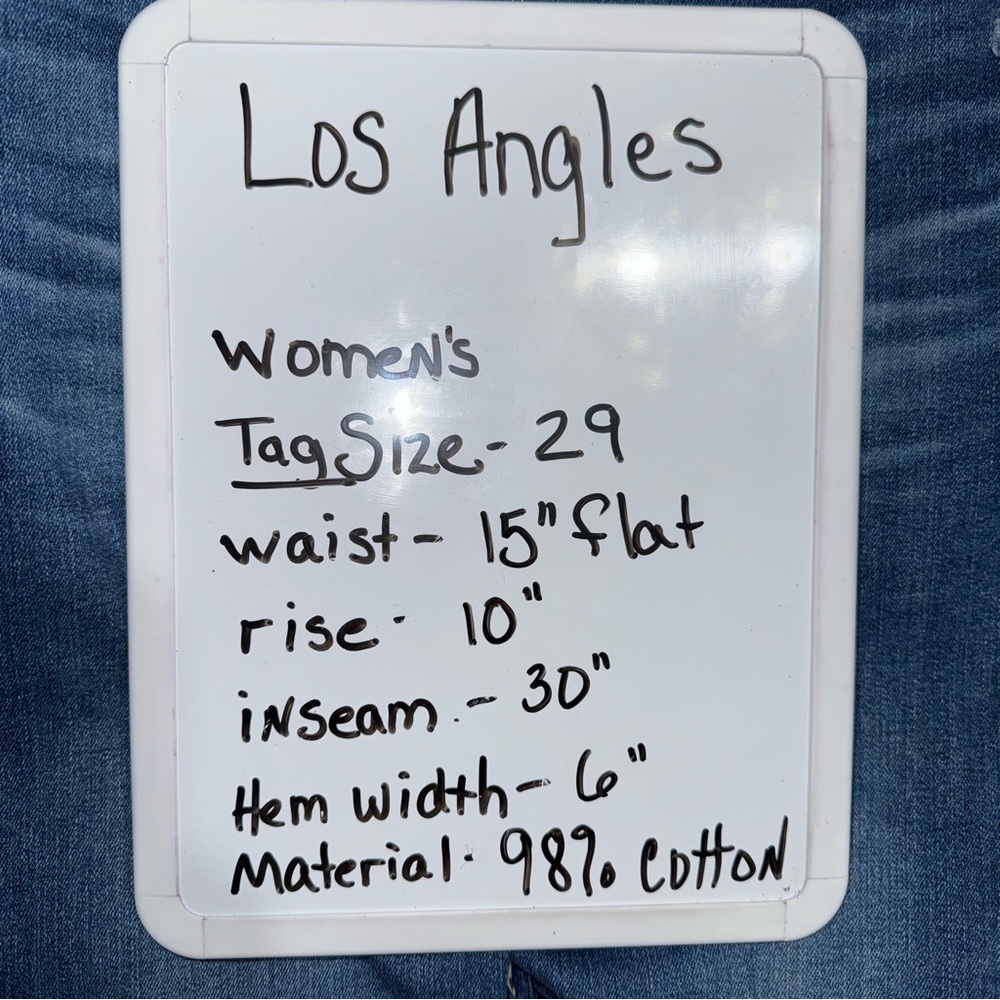 Los Angles
Women's
Tag Size - 29
waist - 15" flat
rise - 10"
inseam - 30"
Hem width - 6"
Material - 98% cotton